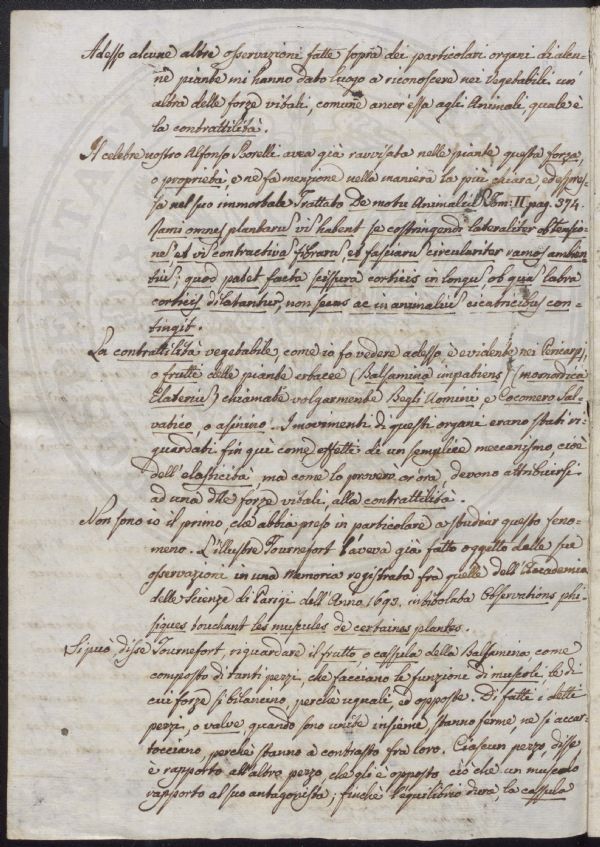 Adesso alcune altre osservazioni fatte sopra dei particolari organi di alcu-
ne piante mi hanno dato luogo a riconoscere nei Vegetabili un'
altra delle forze vitali, comune ancor essa agli Animali, quale è
la contrattilità.
Il celebre nostro Alfonso Borelli avea già ravvisata nelle piante questa forza,
o proprietà, e ne fa menzione nella maniera la più chiara, ed espres-
sa nel suo immortale Trattato De motu Animaliū Tom: II. pag. 374.
Jam omnes plantarū vi habent se costringendi lateraliter obtensio-
nes, et vis contractiva fibrarū, et fasciarū circulariter ramos ambien-
tiū; quod patet facta scissura corticis in longū, ob quā labra
corticis dilatantur, non secus ac in animaliū cicatricibus con-
tingit.
La contrattilità vegetabile, come io fo vedere adesso è evidente nei Pericarpj,
o frutte delle piante erbacee (Balsamina impatiens) (momordica
Elateriū) chiamate volgarmente Begli Uomini, e Cocomero Sal-
vatico, o asinino. I movimenti di questi organi erano stati ri-
guardati fin quì come effetti di un semplice meccanismo, cioè
dell'elasticità, ma come lo proverò or ora, devono attribuirsi
ad una dlle forze vitali, alla contrattilità.
Non sono io il primo, che abbia preso in particolare a studiar questo feno-
meno. L'illustre Tournefort l'aveva già fatto oggetto delle sue
osservazioni in una Memoria registrata fra quelle dell'Accademia
delle Scienze di Parigi dell'Anno 1693. intitolata Observations phi-
siques touchant les muscules de certaines plantes.
Si può, disse Tournefort, riguardare il frutto, o cassula della Balsamina come
composto di tanti pezzi, che facciano le funzioni di muscoli, le di
cui forze si bilancino, perchè uguali, ed opposte. Di fatti i detti
pezzi, o valve quando sono unite insieme stanno ferme, nè si accar-
tocciano, perchè stanno a contrasto fra loro. Ciascun pezzo, disse
è rapporto all'altro pezzo, che gli è opposto ciò chè un muscolo
rapporto al suo antagonista; finchè l'equilibrio dura, la cassula